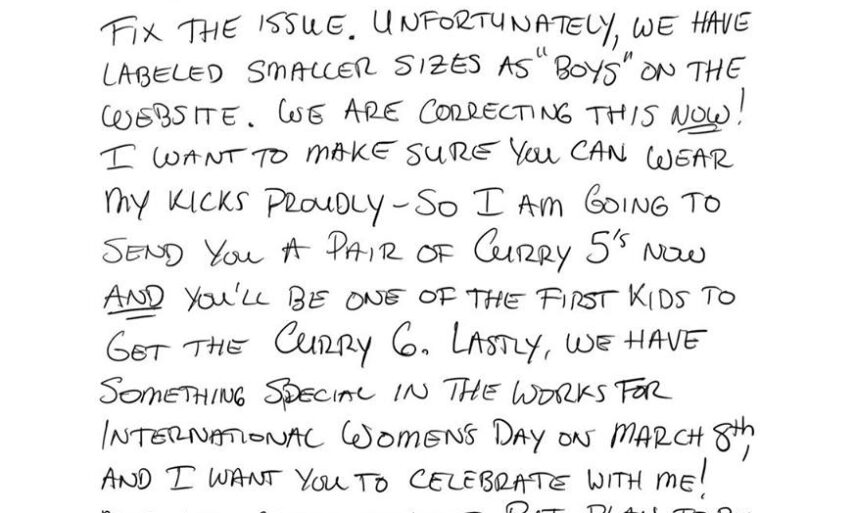 FIX THE ISSUE. UNFORTUNATELY, WE HAVE
LABELED SMALLER SIZES AS "BOYS" ON THE
WEBSITE. WE ARE CORRECTING THIS NOW!
I WANT TO MAKE SURE YOU CAN WEAR
MY KICKS PROUDLY - SO I AM GOING TO
SEND YOU A PAIR OF CURRY 5'S NOW
AND YOU'LL BE ONE OF THE FIRST KIDS TO
GET THE CURRY 6. LASTLY, WE HAVE
SOMETHING SPECIAL IN THE WORKS FOR
INTERNATIONAL WOMEN'S DAY ON MARCH 8th,
AND I WANT YOU TO CELEBRATE WITH ME!